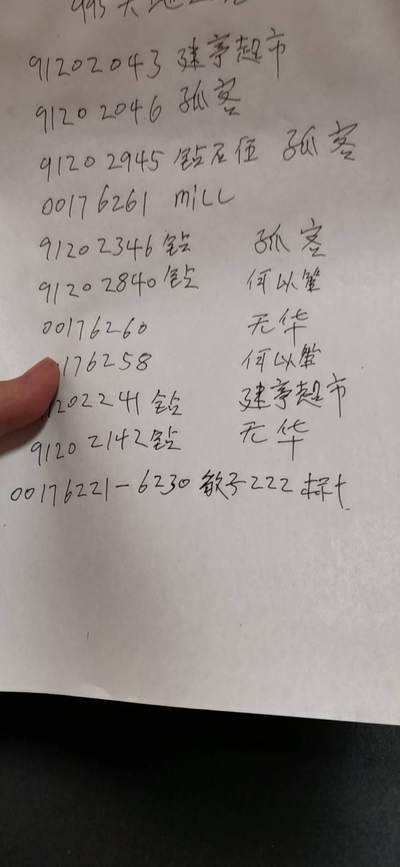 91202043 建亭超市
91202046 孤客
91202945 钻石位 孤客
00176261 mill
91202346 钻 孤客
91202840 钻 何以笙
00176260 无华
176258 何以笙
1202241 钻 建亭超市
91202142 钻 无华
00176221-6230 敏子222